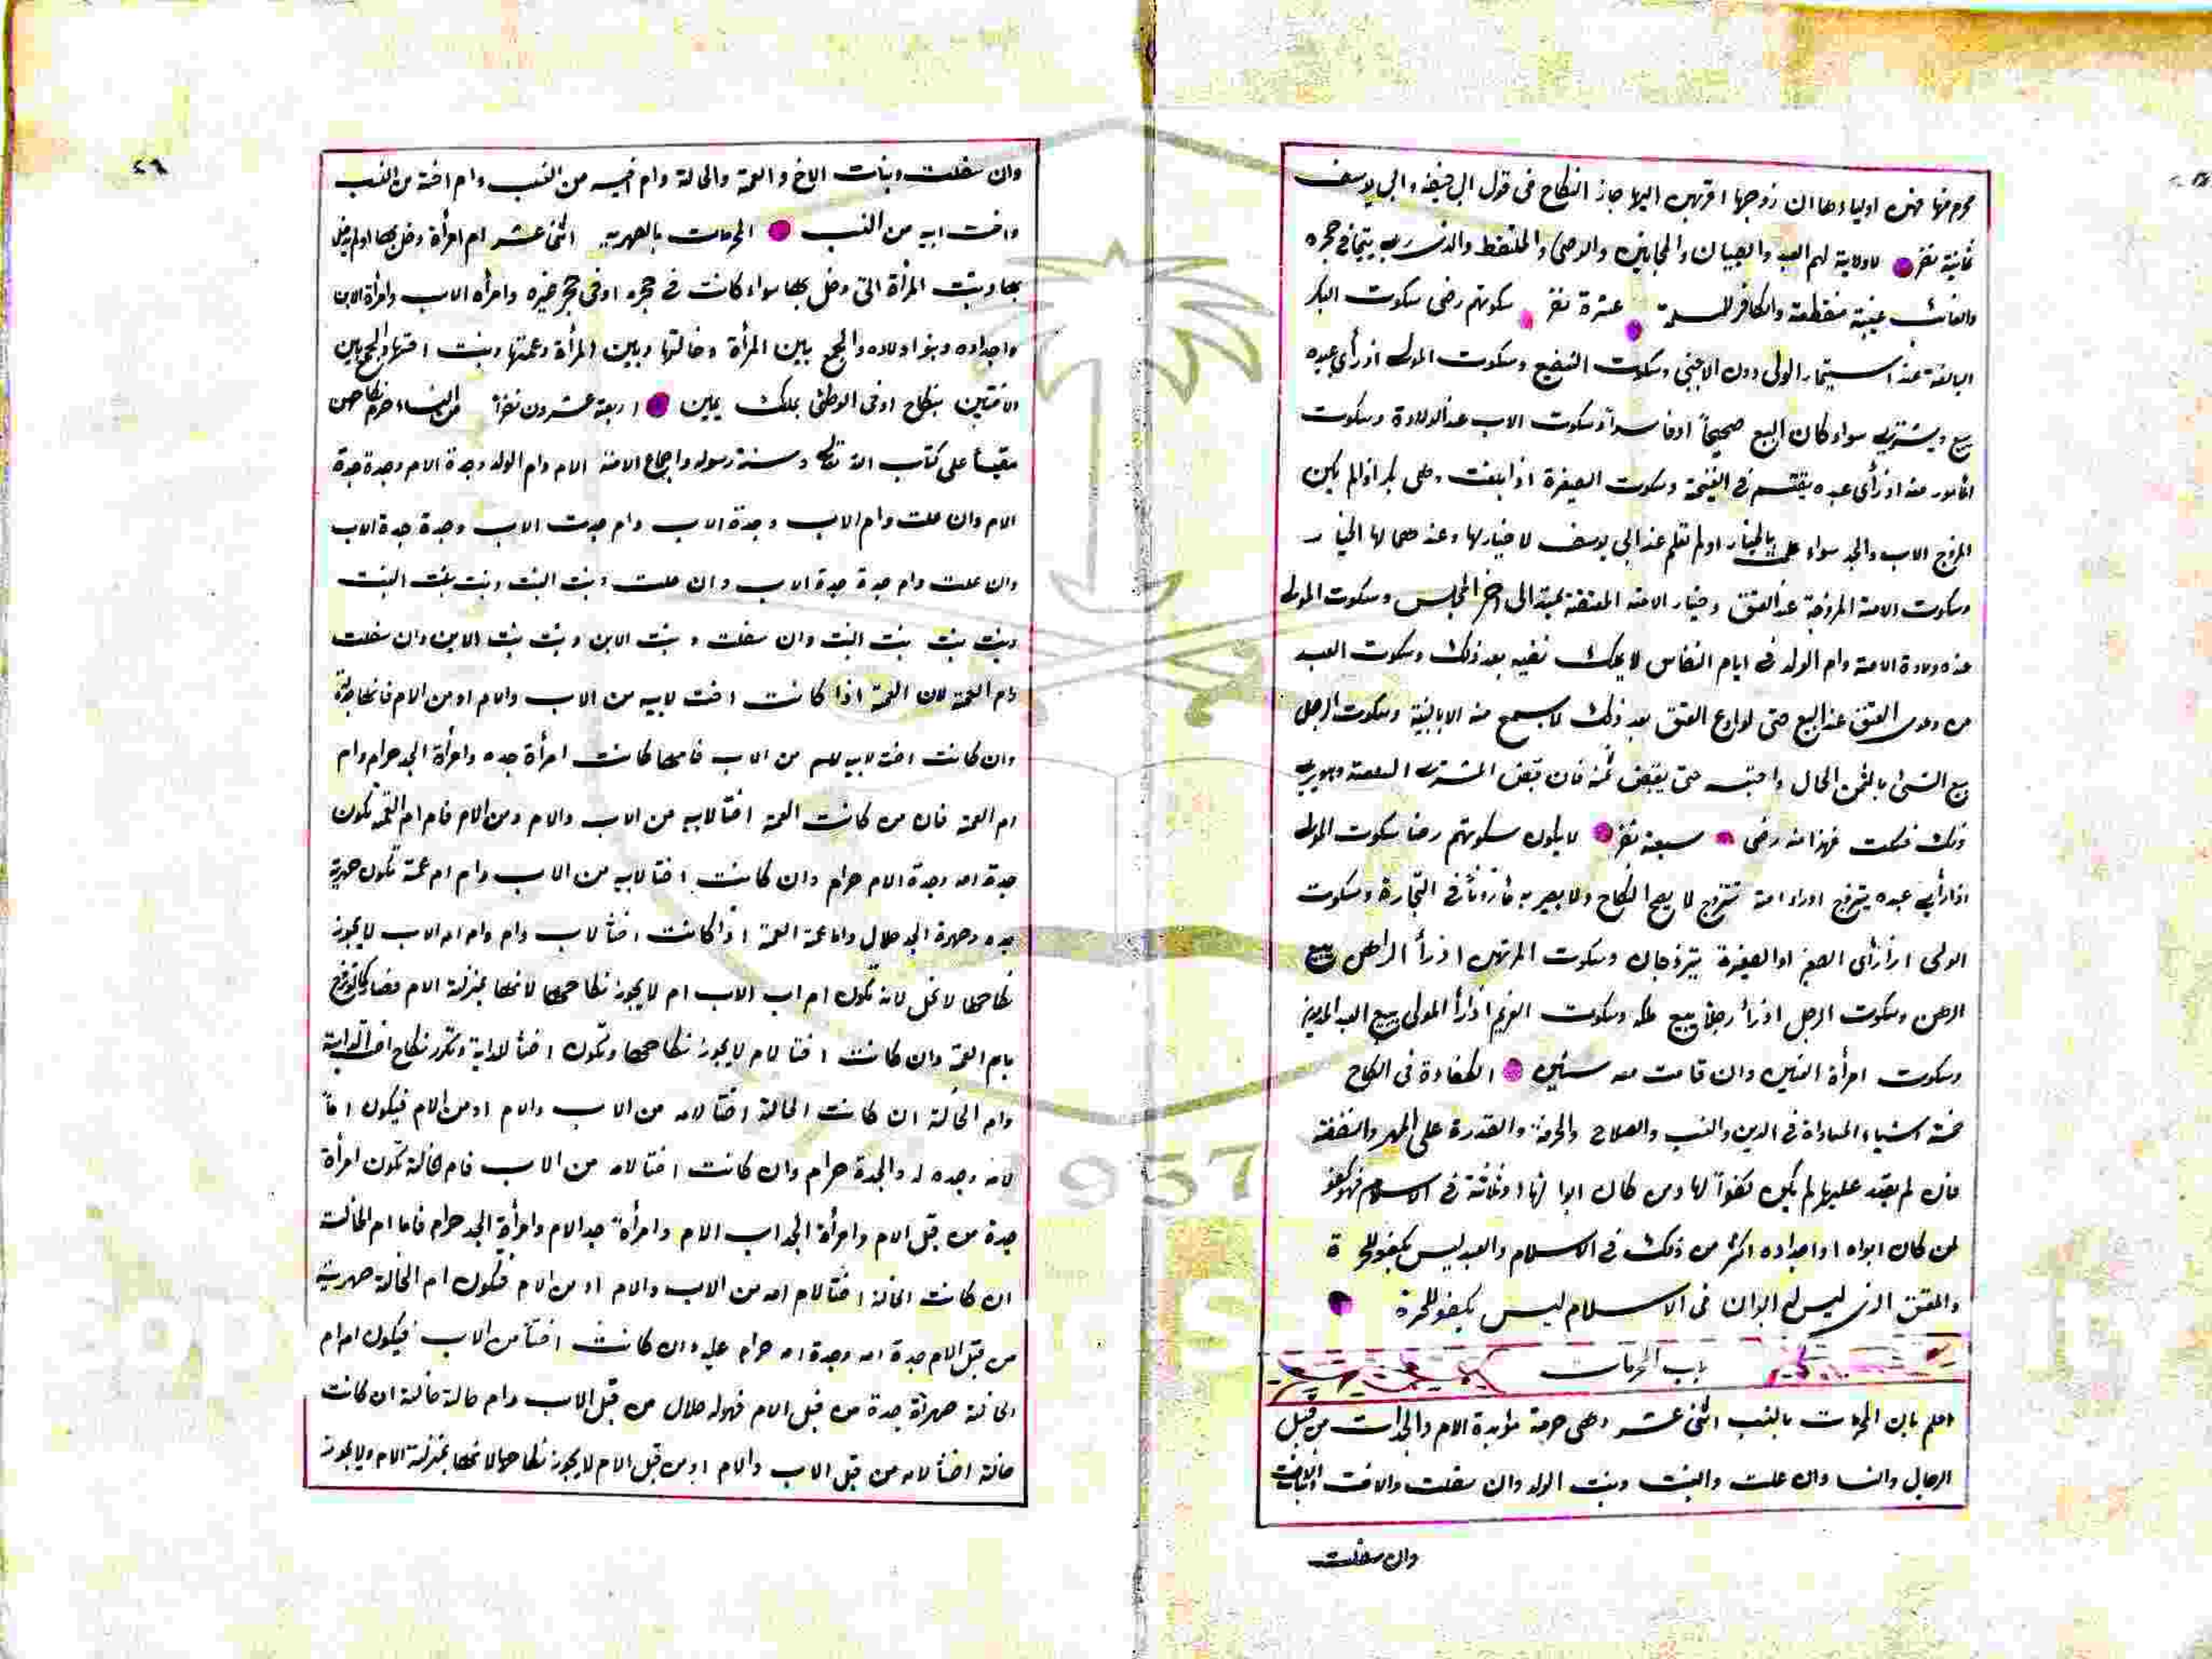 محرم منها فهن اولياءها ان زوجها اقربهن اليها جاز النكاح فى قول ابى حنيفة وابى يوسف
ثمانية نفر لا ولاية لهم العبد والصبيان والمجانين والوصى والملتقط والذى ربى يتيما فى حجره
والغائب غيبة منقطعة والكافر للمسلمة عشرة نفر سكوتهم رضى سكوت البكر
البالغة عند استيمار الولى دون الاجنبى وسكوت الشفيع وسكوت المولى اذ رأى عبده
يبيع ويشترى سواء كان البيع صحيحاً او فاسداً وسكوت الاب عند الولادة وسكوت
المأسور منه اذ رأى عبده يقتسم فى الغنيمة وسكوت الصغيرة اذا بلغت وهى بكر اذ لم يكن
المزوج الاب والجد سواء علمت بالخيار او لم تعلم عند ابى يوسف لا خيار لها وعندهما لها الخيار
وسكوت الامة المزوجة عند العتق وخيار الامة المعتقة يمتد الى اخر المجلس وسكوت المولى
عند ولادة الامة وام الولد فى ايام النفاس لا يملك نفيه بعد ذلك وسكوت العبد
من دعوى العتق عند البيع حتى لو ادعى العتق بعد ذلك لا يسمع منه الا ببينة وسكوت الرجل
يبيع الشئ بالثمن الحال واحتبسه حتى يقبض ثمنه فان قبض المشترى السلعة وهو يرى
ذلك فسكت فهذا منه رضى سبعة نفر لا يكون سكوتهم رضا سكوت المولى
اذا رأى عبده يتزوج او راد امته تتزوج لا يصح النكاح ولا يصير به مأذوناً فى التجارة وسكوت
الولى اذا رأى الصغير او الصغيرة يتزوجان وسكوت المرتهن اذ رأ الراهن يبيع
الرهن وسكوت الرجل اذ رأ رجلاً يبيع ملكه وسكوت الغريم اذ رأ المولى يبيع العبد المديون
وسكوت امرأة العنين وان قامت معه سنتين الكفاءة فى النكاح
خمسة اشياء المساواة فى الدين والنسب والصلاح والحرفة والقدرة على المهر والنفقة
فان لم يقدر عليها لم يكن كفواً لها ومن كان ابوا لها او ثلاثة فى الاسلام فهو كفو
لمن كان ابواه او اجداده اكثر من ذلك فى الاسلام والعبد ليس بكفو للحرة
والمعتق الذى ليس له ابوان فى الاسلام ليس بكفو للحرة
باب المحرمات
اعلم بان المحرمات بالنسب اثنى عشر وهى حرمة مؤبدة الام والجدات من قبل
الرجال والنسا وان علت والبنت وبنت الولد وان سفلت والاخت وبنات الاخت
وان سفلت
٢٦
وان سفلت وبنات الاخ والعمة والخالة وام اخيه من النسب وام اخته من النسب
واخت ابيه من النسب المحرمات بالصهرية اثنى عشر ام امرأة دخل بها او لم يدخل
بها وبنت المرأة التى دخل بها سواء كانت فى حجره او فى حجر غيره وامرأه الاب وامرأة الابن
واجداده وبنو اولاده والجمع بين المرأة وخالتها وبين المرأة وعمتها وبنت اختها والجمع بين
الاختين بنكاح او فى الوطئ بملك يمين اربعة عشرون نفرا من النساء حرم نكاحهن
مقيسا على كتاب الله تعالى وسنة رسوله واجماع الامة الام وام الولد وجدة الام وجدة جدة
الام وان علت وام الاب وجدة الاب وام جدت الاب وجدة جدة الاب
وان علت وام جدة جدة الاب وان علت وبنت البنت وبنت بنت البنت
وبنت بنت بنت البنت وان سفلت وبنت الابن وبنت بنت الابن وان سفلت
وام العمة لان العمة اذا كانت اخت لابيه من الاب والام او من الام فانها جدته
وان كانت اخت لابيه من الاب فامها كانت امرأة جده وامرأة الجد حرام وام
ام العمة فان من كانت العمة اختا لابيه من الاب والام ومن الام فام ام العمة تكون
جدة امه وجدة الام حرام وان كانت اختا لابيه من الاب وام ام عمة تكون صهرية
جده وصهرة الجد حلال واما عمة العمة اذا كانت اختاً لاب وام وام ام الاب لا يجوز
نكاحها لا تحل لانه تكون ام اب الاب ام لا يجوز نكاحها لانها بمنزلة الام فصار كالتزوج
بام العمة وان كانت اختا لام لا يجوز نكاحها وتكون اختاً لدابة وتكرر نكاح اخت الدابة
وام الخالة ان كانت الخالة اختا لامه من الاب والام او من الام فيكون اماً
لامه وجده له والجدة حرام وان كانت اختا لامه من الاب فام الخالة تكون امرأة
جدة من قبل الام وامرأة الجد اب الام وامرأة جد الام وامرأة الجد حرام فاما ام الخالت
ان كانت الخالة اختا لام امه من الاب والام او من الام فتكون ام الخالة صهرية
من قبل الام جدة امه وجدة امه حرام عليه وان كانت اختاً من الاب فيكون ام ام
الخالة صهرأة جدة من قبل الام فهو له حلال من قبل الاب وام خالة خالة ان كانت
خالة اختاً لامه من قبل الاب والام او من قبل الام لا يجوز نكاحها لانها بمنزلة الام ولا يجوز
1957